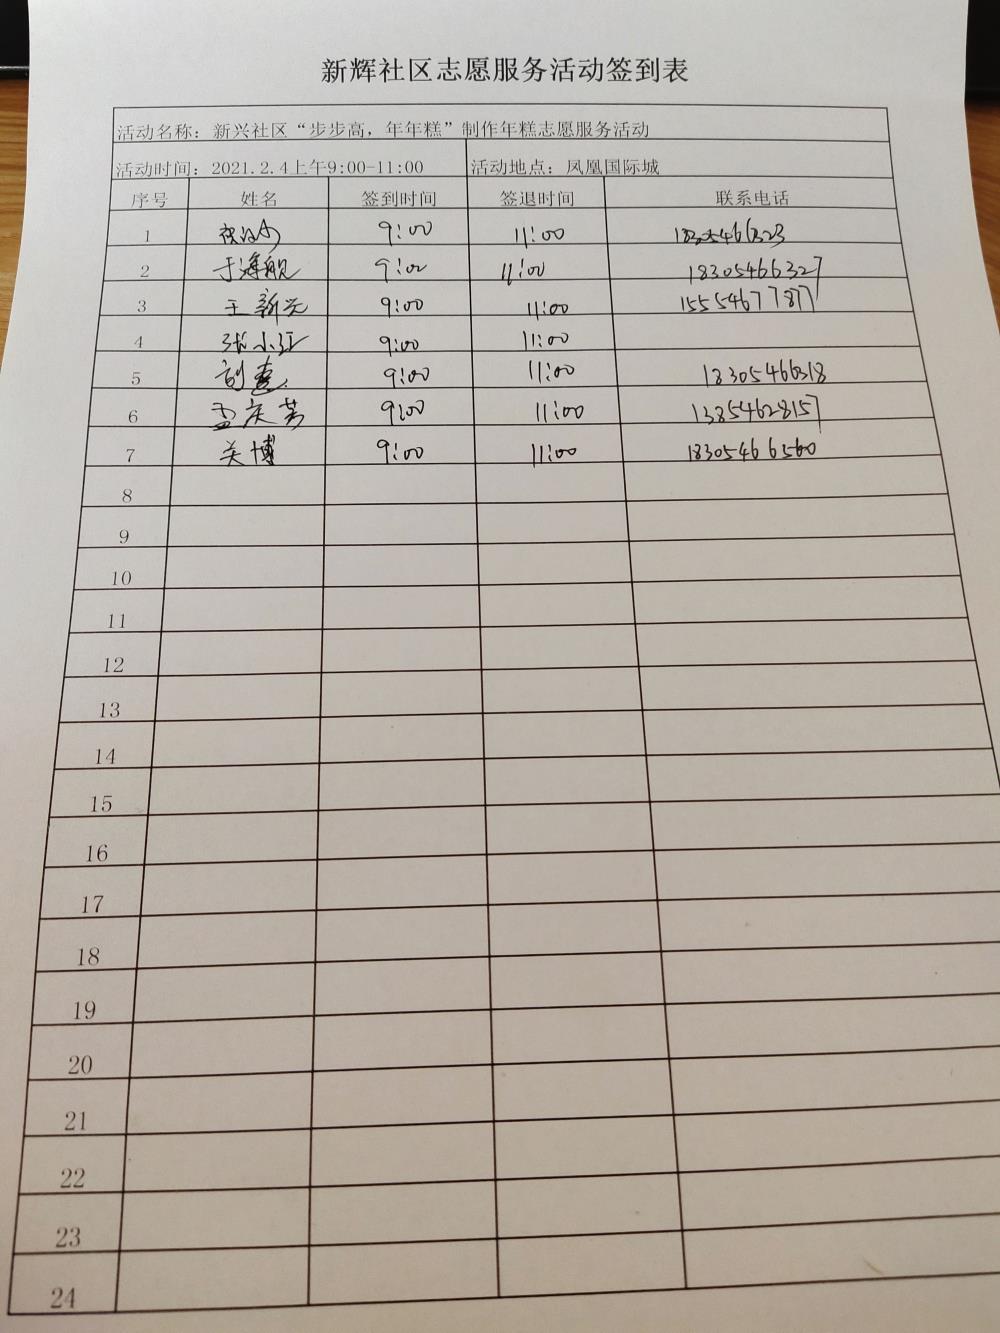 新辉社区志愿服务活动签到表
活动名称：新兴社区“步步高，年年糕”制作年糕志愿服务活动
活动时间：2021.2.4上午9:00-11:00 活动地点：凤凰国际城
序号 姓名 签到时间 签退时间 联系电话
1 9:00 11:00 18305466323
2 于海舰 9:00 11:00 18305466327
3 王新光 9:00 11:00 15554677877
4 张小江 9:00 11:00
5 9:00 11:00 18305466318
6 孟庆芳 9:00 11:00 13854628157
7 关博 9:00 11:00 18305466560
8
9
10
11
12
13
14
15
16
17
18
19
20
21
22
23
24